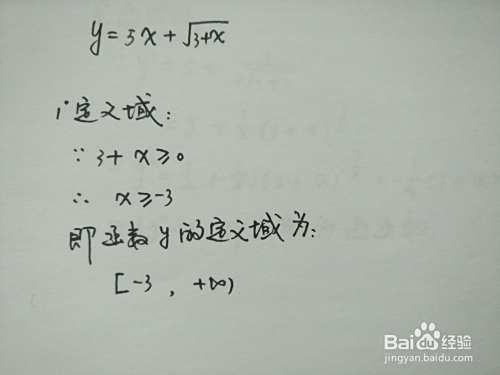 y=5x+√3+x
i°定义域:
∵ 3+x≥0
∴ x≥-3
即函数y的定义域为:
[-3, +∞)
Baidu经验
jingyan.baidu.com